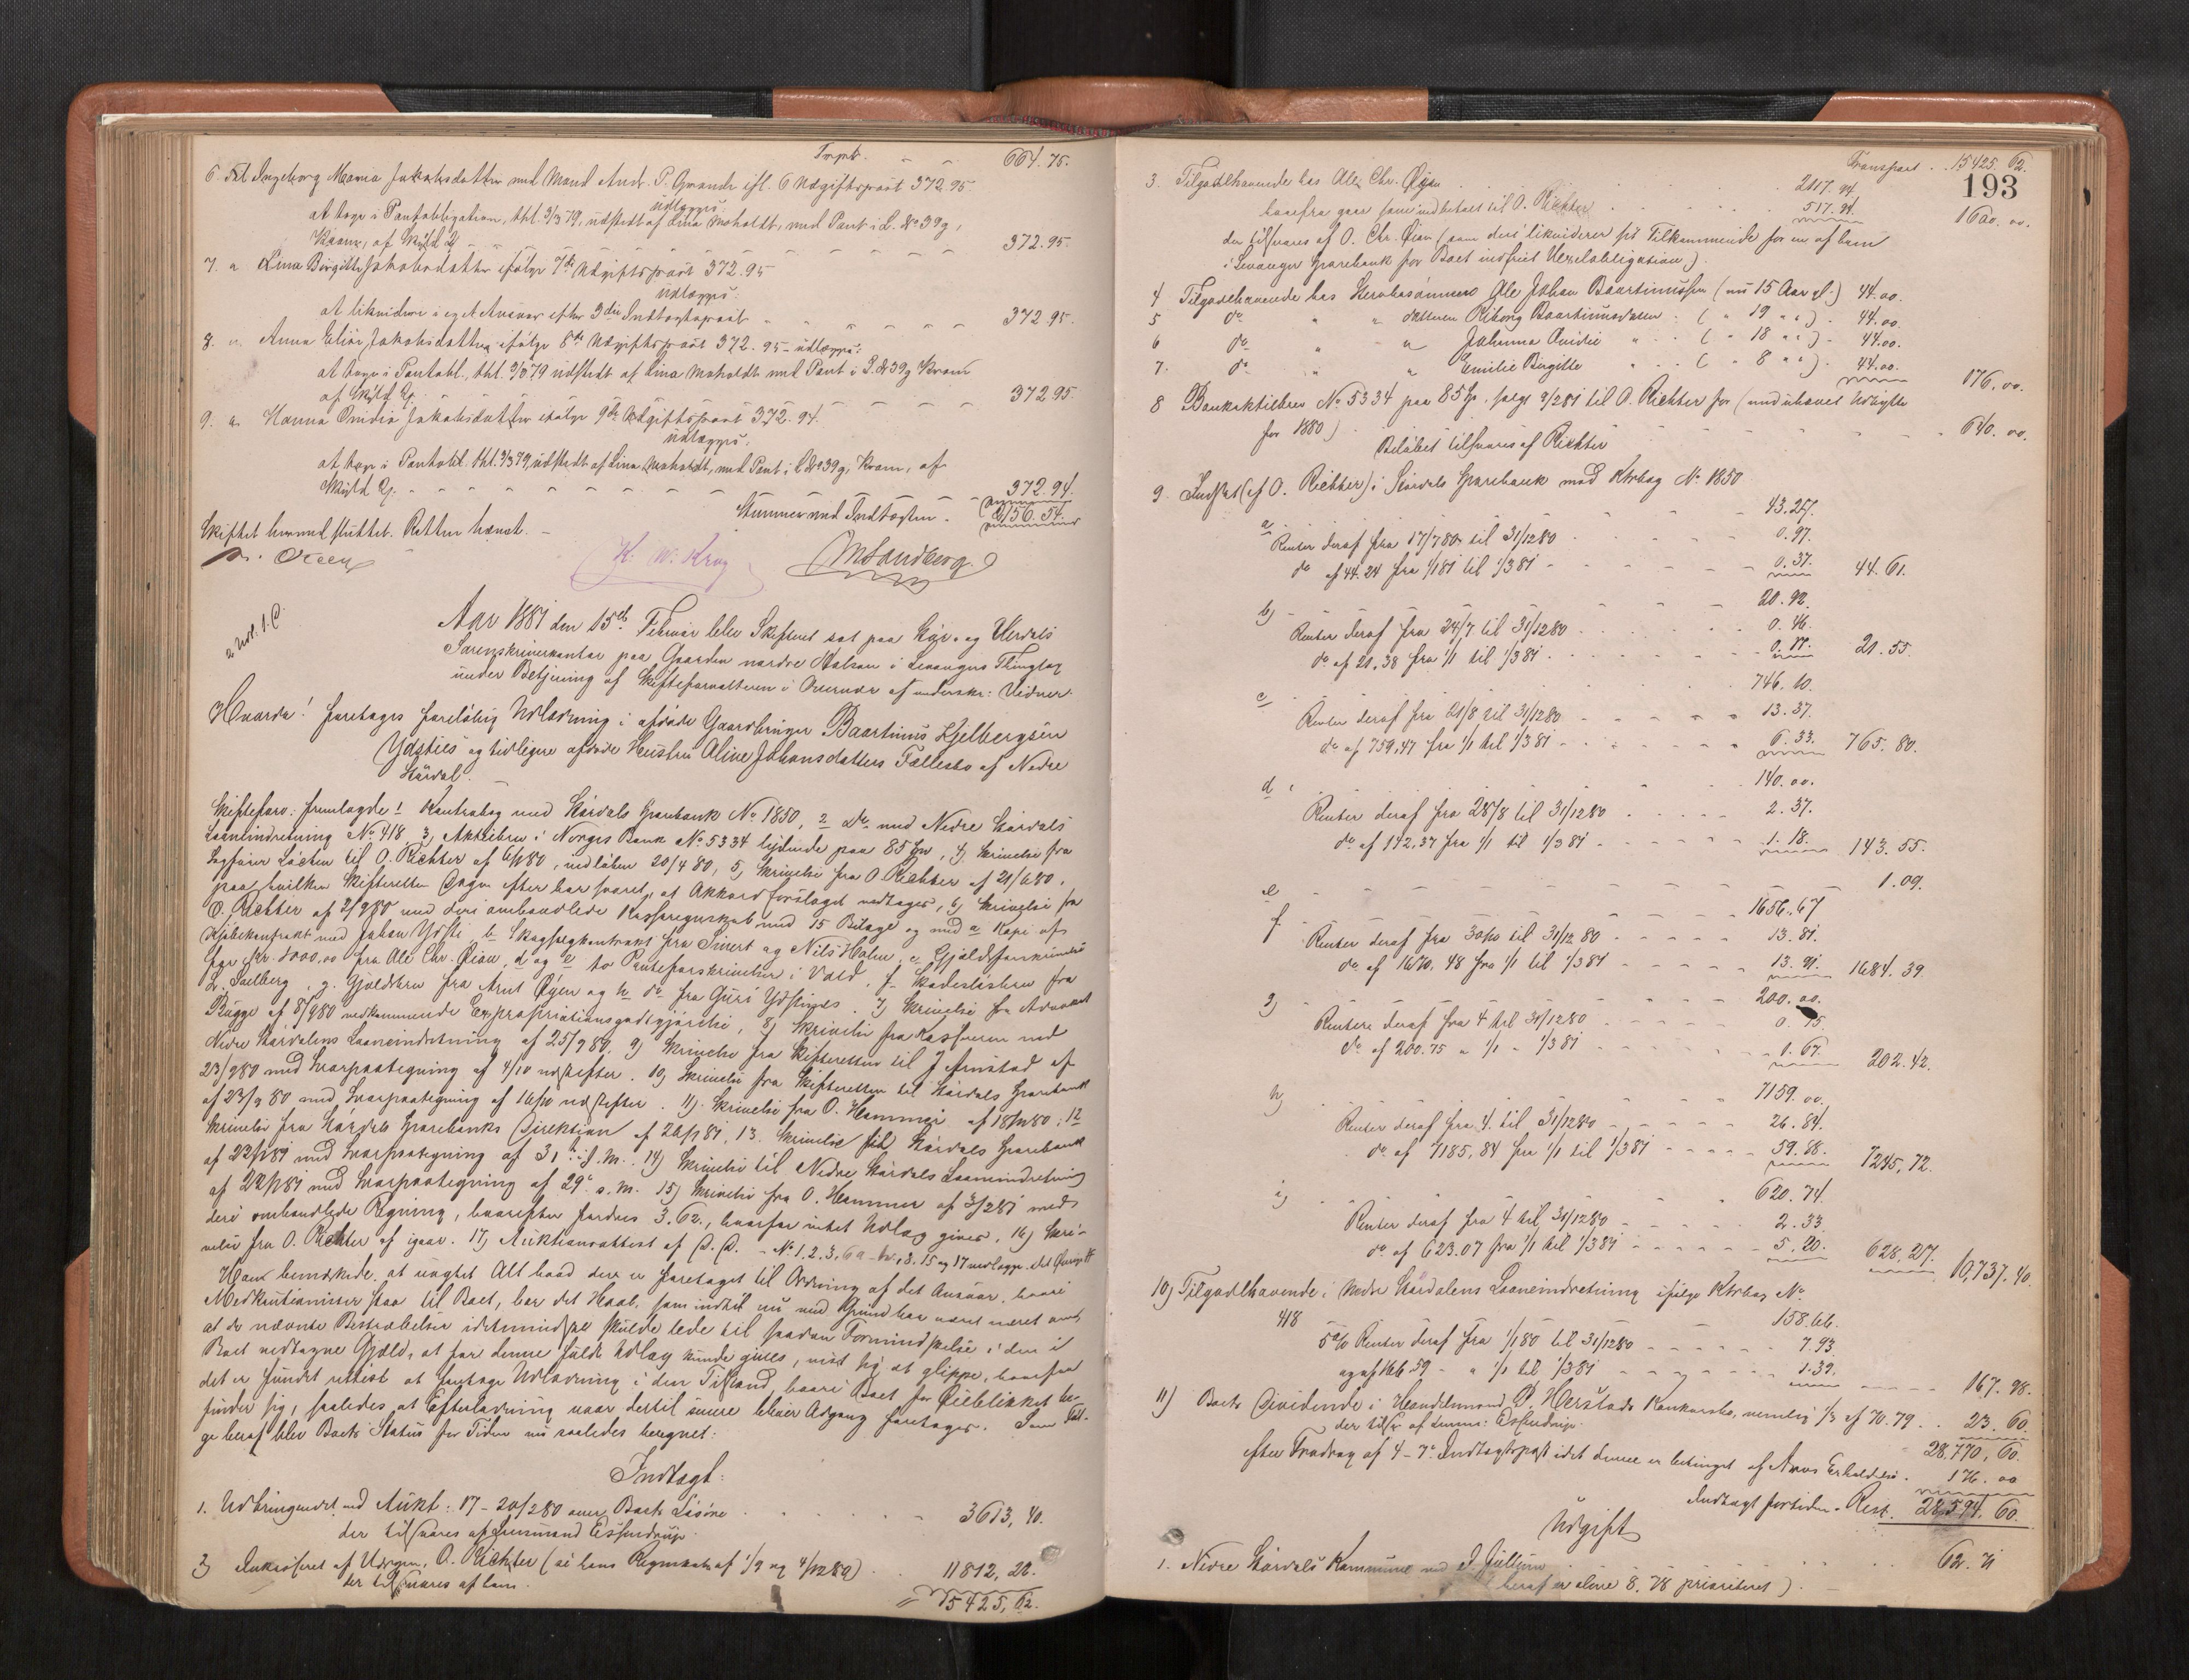 Trpt. - - 664.75.
6. Til Ingeborg Maria Jakobsdatter med Mand And. P. Grande ifl. 6 Udgiftspost 372.95.
udlægges:
at tage i Pantobligation, thl. 3/3 79, udstedt af Lina Moholdt, med Pant i L. No 39g,
Kram, af Skyld - - - 372.95.
7. " Lina Birgitte Jakobsdatter ifølge 7de Udgiftspost 372.95
udlægges:
at likvidere i eget Ansvar efter 3die Indtægtspost - - - 372.95.
8. " Anna Elise Jakobsdatter ifølge 8de Udgiftspost 372.95 - udlægges:
at tage i Pantobl., thl. 3/3 79 udstedt af Lina Moholdt med Pant i L. No 39g Kram
af Skyld - - - 372.95
9. " Hanna Ovidia Jakobsdatter ifølge 9de Udgiftspost 372.94.
udlægges:
at tage i Pantobl. thl. 3/3 79, udstedt af Lina Moholdt, med Pant i L. No 39g, Kram, af
Skyld - - - 372.94.
Stemmer med Indtægten. - 6156.54.
Skiftet hermed sluttet. Retten hævet. -
H. W. Krog M Sandberg.
Aar 1881 den 15de Februar blev Skifteret sat paa Stjør- og Værdals
Sorenskriverkontor paa Gaarden nordre Halsan i Levangers Thinglag
under Betjening af Skifteforvalteren i Overvær af underskr: Vidner.
Hvorda! foretages foreløbig Udlodning i afdøde Gaardbruger Baartinus Kjelbergsen
Ydsties og tidligere afdøde Hustru Aline Johansdatters Fællesbo af Nedre
Stjørdal. -
Skifteforv. fremlagde: 1 Kontrabog med Stjørdals Sparebank No 1850, 2 Do. med Nedre Stjørdals
Laaneindretning No 418, 3, Aktiebrev i Norges Bank No 5334 lydende paa 85 Spd, 4, Skrivelse fra
Sagfører Løchen til O. Richter af 80, indløben 20/4 80, 5, Skrivelse fra O. Richter af 21/6 80,
paa hvilken Skifteretten Dagen efter har svaret, at Akkordforslaget vedtages, 6, Skrivelse fra
O. Richter af 2/9 80 med deri ombandlede Kasseregnskab med 15 Bilage og med a Kopi af
Kjøbekontrakt med Johan Ydsti, b Skogsalgkontrakt fra Sivert og Nils Holm, c Gjældsforskrivelse
for Kr. 2000,00 fra Ole Chr. Øian, d og e to Panteforskrivelser i Vold, f Skadesløsbrev fra
L. Salberg, g. Gjældsbrev fra Arnt Øyen og h do fra Guri Ydsties. 7) Skrivelse fra Advokat
Bugge af 8/9 80 vedkommende Expropriationsgodtgjørelse, 8) Skrivelse fra Kassereren ved
Nedre Stjørdalens Laaneindretning af 25/9 80, 9) Skrivelse fra Skifteretten til J. Arnstad af
23/9 80 med Svarpaategning af 4/10 næstefter. 10) Skrivelse fra Skifteretten til Stjørdals Sparebank
af 23/9 80 med Svarpaategning af 16/10 næstefter. 11). Skrivelse fra O. Hammer af 18/11 80; 12
Skrivelse fra Stjørdals Sparebanks Direktion af 26/1 81, 13. Skrivelse til Stjørdals Sparebank
af 22/1 81 med Svarpaategning af 31te s. M. 14) Skrivelse til Nedre Stjørdals Laaneindretning
af 22/1 81 med Svarpaategning af 29de s. M. 15) Skrivelse fra O. Hammer af 3/2 81 med
deri ombandlede Regning, hvorefter fordres 3.62., hvorfor intet Udlæg gives, 16) Skri-
velse fra O. Richter af igaar. 17, Auktionsattest af D.D. - No 1.2.3.6a-h, 8.15 og 17 vedlægges det Øvrige ff
Han bemærkede, at uagtet Alt hvad der er foretaget til Ordning af det Ansvar, hvori
Medkautionister staa til Boet, har det Haab, som indtil nu med Grund har været næret om,
at de nævnte Bestræbelser idetmindste skulde lede til saadan Formindskelse i den i
Boet vedtagne Gjæld, at for denne fuldt Udlæg kunde gives, vist sig at glippe, hvorfor
det er fundet rettest at foretage Udlodning i den Tilstand, hvori Boet for Øieblikket be-
finder sig, saaledes at Efterlodning naar dertil senere bliver Adgang foretages. Som Føl-
ge heraf blev Boets Status for Tiden nu saaledes beregnet:
Indtægt:
1. Udbringendet ved Aukt: 17-20/2 80 over Boets Løsøre - - - 3613,40.
der tilsvares af Lensmand Essendrup.
2) Inkasseret af Udgren. O. Richter (se hans Regnskab af 1/9 og 4/12 80) . . 11812,22.
der tilsvares af ham.
15425,62.
Transport . 15425.62.
193
3. Tilgodehavende hos Ole Chr. Øyan . . . 2117.94.
hvorfra gaar som indbetalt til O. Richter . . . 517.94. 1600.00.
der tilsvares af O. Chr. Øian (som deri likviderer sit Tilkommende for en af ham
i Levanger Sparebank for Boet indfriet Vexelobligation).
4 Tilgodehavende hos Ole Johan Baartinussen (nu 15 Aar gl.) 44.00.
5 do " " datteren Riborg Baartinusdatter . ( " 19 " " ) . 44.00.
6 do " " Johanna Ovidie " . . ( " 18 " " ) . 44.00.
7. do " " Emilie Birgitte " . . ( " 8 " " ) . 44.00. 176.00.
8 Bankaktiebrev No 5334 paa 85 Sp. solgt 9/2 81 til O. Richter for (med uhævet Udbytte
for 1880) . . . 640.00.
Beløbet tilsvares af Richter
9. Indsat (af O. Richter) i Stjørdals Sparebank mod Ktrbog No 1850
a) 43.27.
Renter deraf fra 17/7 80 til 31/12 80 . . . 0.97.
do af 44.24 fra 1/1 81 til 1/3 81 - - - 0.37. 44.61.
b) - - - 20.92.
Renter deraf fra 24/7 til 31/12 80 . . . 0.46.
do af 21.38 fra 1/1 til 1/3 81 . . . 0.17. 21.55.
c - - - 746.10.
Renter deraf fra 21/8 til 31/12 80 - - - 13.37.
do af 759,47 fra 1/1 til 1/3 81 - - - 6.33. 765.80.
d . . . 140.00.
Renter deraf fra 28/8 til 31/12 80 . . . 2.37.
do af 142,37 fra 1/1 til 1/3 81 - - - 1.18. 143.55.
e - - - 1.09.
f - - - 1656.67
Renter deraf fra 30/10 til 31/12 80 - - - 13.81.
do af 1670,48 fra 1/1 til 1/3 81 - - - 13.91. 1684.39.
g) - - - 200.00.
Renter deraf fra 4 til 31/12 80 - - - 0.75.
do af 200.75 " 1/1 " 1/3 81 - - - 1.67. 202.42.
h) - - - 7159.00
Renter deraf fra 4. til 31/12 80 - - - 26.84.
do af 7185,84 fra 1/1 til 1/3 81 - - - 59.88. 7245,72.
i) - - - 620.74.
Renter deraf fra 4 til 31/12 80 - - - 2.33.
do af 623.07 fra 1/1 til 1/3 81 - - - 5.20. 628.27. 10,737.40.
10) Tilgodehavende i Nedre Stjørdalens Laaneindretning ifølge Ktrbog No
418 158.66.
5% Renter deraf fra 1/1 80 til 31/12 80 - - - 7.93.
og af 166.59 - " 1/1 til 1/3 81 - - - 1.39. - - - 167.98.
11) Boets Dividende i Handelsmand P. Herstads Konkursbo, nemlig 1/3 af 70.79 . . 23.60.
der tils. af Lensm: Essendrup.
28,770,60.
efter Fradrag af 4-7de Indtægtspost idet denne er betinget af Arvs Erholdelse. 176.00
Indtægt fortiden - Rest. 28,594.60.
Udgift
1. Nedre Stjørdals Kommune ved J. Jullum . . . 62.71
(heraf er alene 8.78 prioriteret).